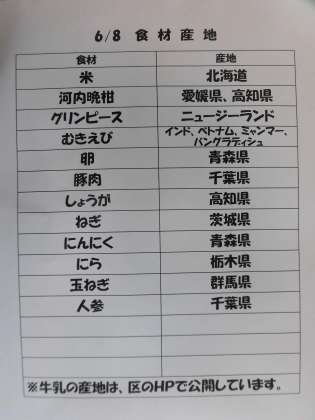 6/8 食材産地
食材 産地
米 北海道
河内晩柑 愛媛県、高知県
グリンピース ニュージーランド
むきえび インド、ベトナム、ミャンマー、
バングラディシュ
卵 青森県
豚肉 千葉県
しょうが 高知県
ねぎ 茨城県
にんにく 青森県
にら 栃木県
玉ねぎ 群馬県
人参 千葉県
※牛乳の産地は、区のHPで公開しています。